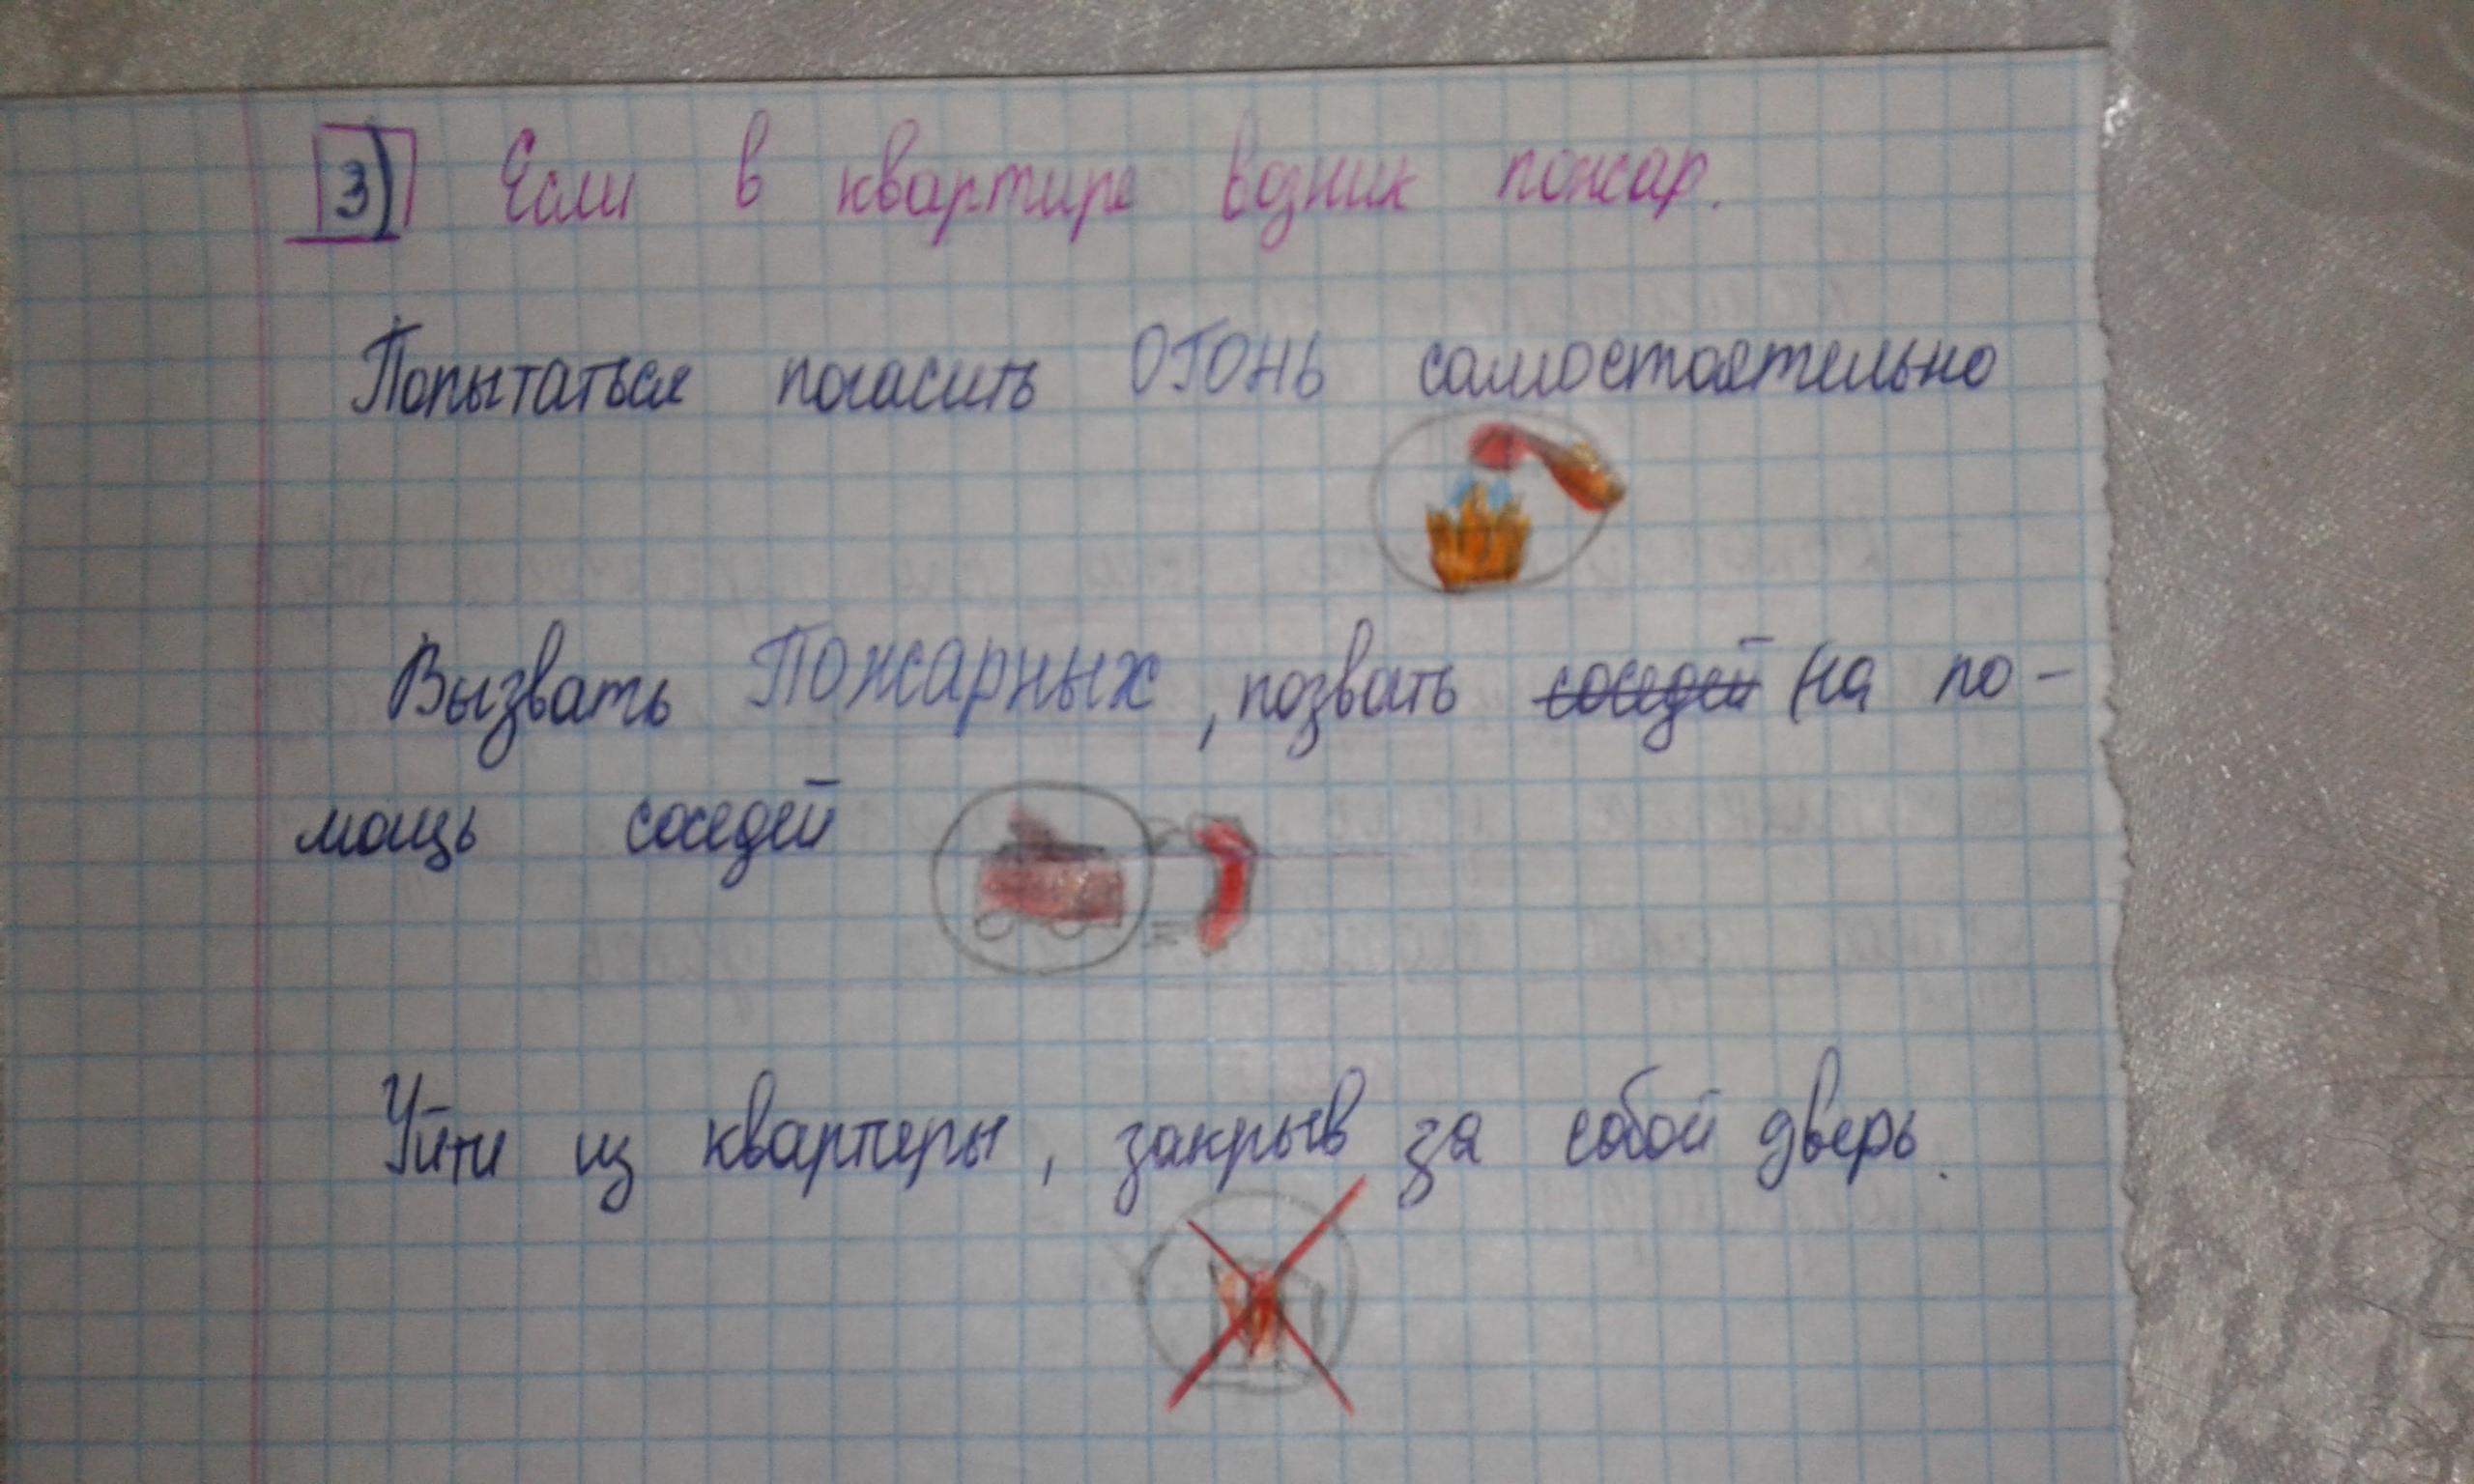 3) Если в квартире возник пожар.
Попытаться погасить ОГОНЬ самостоятельно
Вызвать Пожарных, позвать соседей (на по-
мощь соседей
Уйти из квартиры, закрыв за собой дверь.